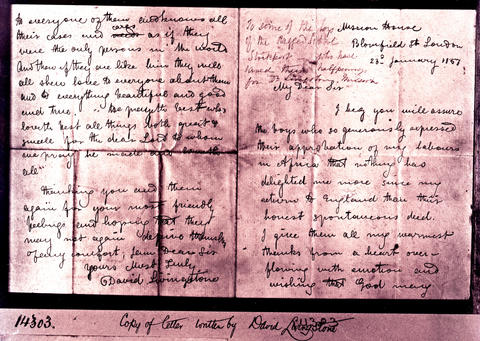 To some of the boys
of the                     School
Stockport who have
                    halfpenny
for Dr Livingstone Mission
Mission House
Blomfield St London
23d January 1857
My Dear Sir
I beg you will assure
the boys who so generously expressed
their approbation of my labours
in Africa that nothing has
delighted me more since my
return to England than this
honest spontaneous deed.
I give them all my warmest
thanks from a heart over
flowing with emotion and
wishing that God may
to everyone of them and knows all
their cases and cares as if they
were the only persons in the world
And then if they are like him they will
all show love to everyone about them
and to everything beautiful and good
and true. He prayeth best who
loveth best all things both great &
small for the dear Lord to whom
we pray he made and loveth
all"
Thanking you and them
again for your most friendly
feelings and hoping that they
may not again deprive themselves
of any comfort, I am Dear Sir
Yours Most Truly
David Livingstone
14303. Copy of letter written by David Livingstone